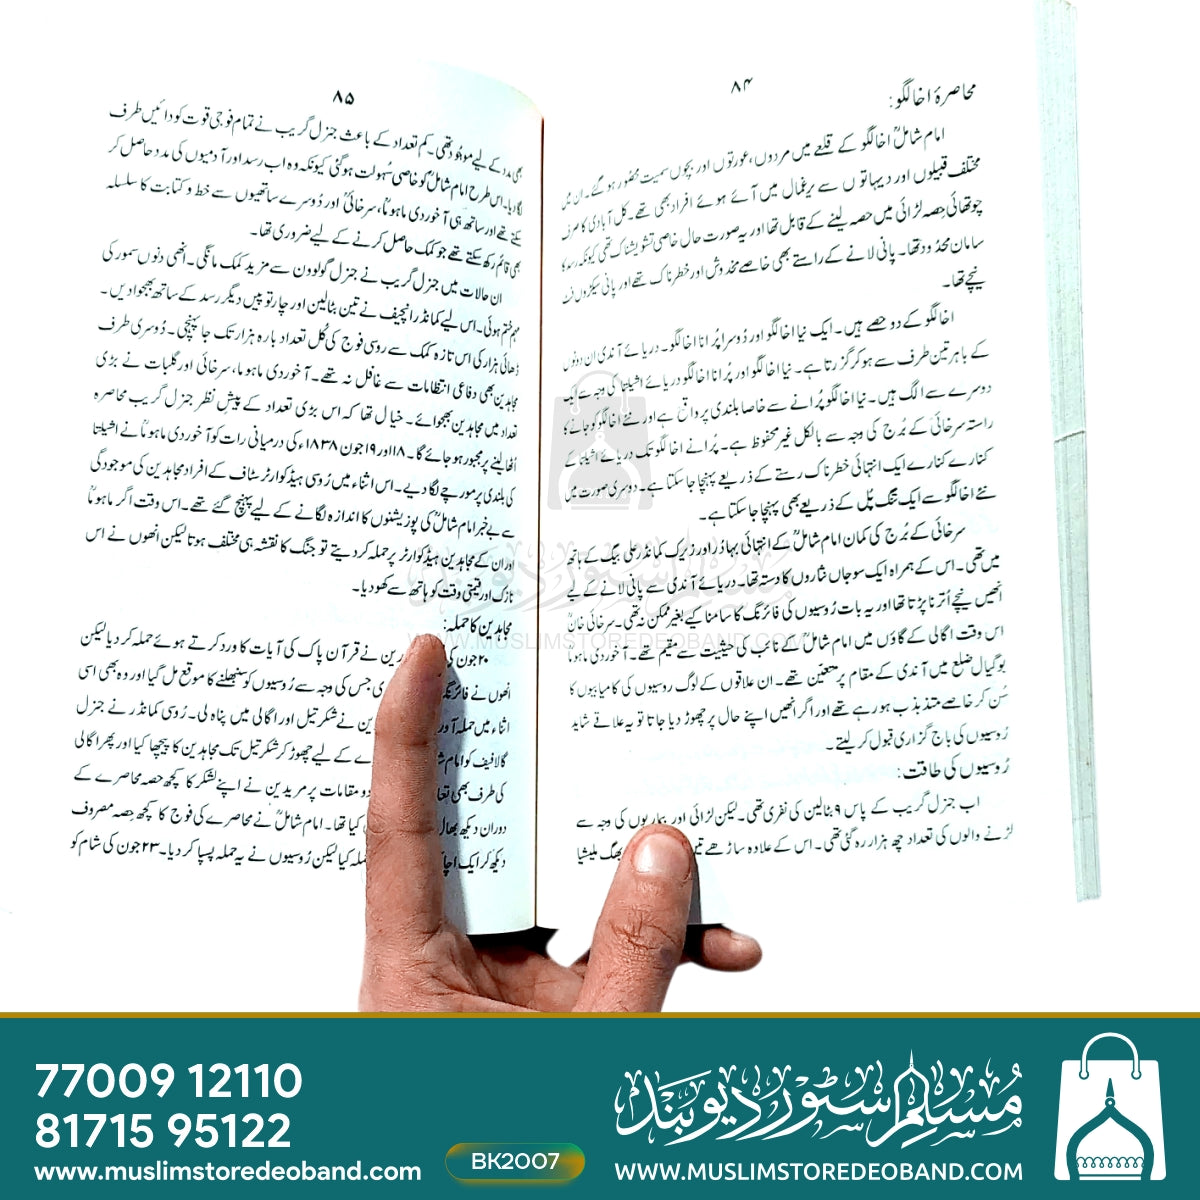 ۸۴
محاصرۂ اخالگو:
امام شاملؒ اخالگو کے قلعے میں مردوں، عورتوں اور بچوں سمیت محصُور ہو گئے۔ ان میں
مختلف قبیلوں اور دیہاتوں سے یرغمال میں آئے ہوئے افراد بھی تھے۔ کل آبادی کا صرف
چوتھائی حِصہ لڑائی میں حصہ لینے کے قابل تھا اور یہ صورت حال خاصی تشویشناک تھی کیونکہ رسد کا
سامان محدُود تھا۔ پانی لانے کے راستے بھی خاصے مخدوش اور خطرناک تھے اور پانی سیکڑوں فٹ
نیچے تھا۔
اخالگو کے دو حصے ہیں۔ ایک نیا اخالگو اور دُوسرا پُرانا اخالگو۔ دریائے آندی ان دونوں
کے باہر تین طرف سے ہو کر گزرتا ہے۔ نیا اخالگو اور پُرانا اخالگو دریائے اشیلتا کی وجہ سے ایک
دوسرے سے الگ ہیں۔ نیا اخالگو پُرانے سے خاصا بلندی پر واقع ہے اور نئے اخالگو کو جانے کا
راستہ سرخائی کے بُرج کی وجہ سے بالکل غیر محفوظ ہے۔ پُرانے اخالگو تک دریائے اشیلتا کے
کنارے کنارے ایک انتہائی خطرناک رستے کے ذریعے پہنچا جا سکتا ہے۔ دوسری صورت میں
نئے اخالگو سے ایک تنگ پُل کے ذریعے بھی پہنچا جا سکتا ہے۔
سرخائی کے بُرج کی کمان امام شاملؒ کے انتہائی بہادُر اور زیرک کمانڈر علی بیگ کے ہاتھ
میں تھی۔ اس کے ہمراہ ایک سو جاں نثاروں کا دستہ تھا۔ دریائے آندی سے پانی لانے کے لیے
انھیں نیچے اُترنا پڑتا تھا اور یہ بات رُوسیوں کی فائرنگ کا سامنا کیے بغیر ممکن نہ تھی۔ سرخائی خانؒ
اس وقت اگالی کے گاؤں میں امام شاملؒ کے نائب کی حیثیت سے مقیم تھے۔ آخوردی ماہوما
بوگیال ضلع میں آندی کے مقام پر متعیّن تھے۔ ان علاقوں کے لوگ روسیوں کی کامیابیوں کا
سُن کر خاصے متذبذب ہو رہے تھے اور اگر انھیں اپنے حال پر چھوڑ دیا جاتا تو یہ علاقے شاید
رُوسیوں کی باج گزاری قبول کر لیتے۔
رُوسیوں کی طاقت:
اب جنرل گریب کے پاس ۹ بٹالین کی نفری تھی۔ لیکن لڑائی اور بیماریوں کی وجہ سے
لڑنے والوں کی تعداد چھ ہزار رہ گئی تھی۔ اس کے علاوہ ساڑھے تین بھگ ملیشیا
۸۵
بھی مدد کے لیے موجُود تھی۔ کم تعداد کے باعث جنرل گریب نے تمام فوجی قوت کو دائیں طرف
لگا دیا۔ اس طرح امام شاملؒ کو خاصی سُہولت ہو گئی کیونکہ وہ اب رسد اور آدمیوں کی مدد حاصل کر
سکتے تھے اور ساتھ ہی آخوردی ماہوماؒ، سرخائیؒ اور دُوسرے ساتھیوں سے خط و کتابت کا سلسلہ
بھی قائم رکھ سکتے تھے جو کمک حاصل کرنے کے لیے ضروری تھا۔
ان حالات میں جنرل گریب نے جنرل گولوون سے مزید کمک مانگی۔ انھی دنوں سمور کی
مہم ختم ہوئی۔ اس لیے کمانڈر انچیف نے تین بٹالین اور چار توپیں دیگر رسد کے ساتھ بھجوا دیں۔
ڈھائی ہزار کی اس تازہ کمک سے روسی فوج کی کُل تعداد بارہ ہزار تک جا پہنچی۔ دُوسری طرف
مجاہدین بھی دفاعی انتظامات سے غافل نہ تھے۔ آخوردی ماہوما، سرخائی اور گلبات نے بڑی
تعداد میں مجاہدین بھجوائے۔ خیال تھا کہ اس بڑی تعداد کے پیش نظر جنرل گریب محاصرہ
اٹھا لینے پر مجبور ہو جائے گا۔ ۱۸ اور ۱۹ جون ۱۸۳۸ء کی درمیانی رات کو آخوردی ماہوماؒ نے اشیلتا
کی بلندی پر مورچے لگا دیے۔ اس اثناء میں رُوسی ہیڈ کوارٹر سٹاف کے افراد مجاہدین کی موجودگی
سے بے خبر امام شاملؒ کی پوزیشنوں کا اندازہ لگانے کے لیے پہنچ گئے تھے۔ اس وقت اگر ماہوماؒ
اور ان کے مجاہدین ہیڈ کوارٹر پر حملہ کر دیتے تو جنگ کا نقشہ ہی مختلف ہوتا لیکن انھوں نے اس
نازک اور قیمتی وقت کو ہاتھ سے کھو دیا۔
مجاہدین کا حملہ:
۲۰ جون کی رین نے قرآن پاک کی آیات کا ورد کرتے ہوئے حملہ کر دیا لیکن
انھوں نے فائرنگ ری جس کی وجہ سے رُوسیوں کو سنبھلنے کا موقع مل گیا اور وہ بھی اسی
اثناء میں حملہ آور ین نے شکر تیل اور اگالی میں پناہ لی۔ رُوسی کمانڈر نے جنرل
گالافیف کو امام رے کے لیے چھوڑ کر شکر تیل تک مجاہدین کا پیچھا کیا اور پھر اگالی
کی طرف بھی دو مقامات پر مریدین نے اپنے لشکر کا کچھ حصہ محاصرے کے
دوران دیکھ بھال کیا تھا۔ امام شاملؒ نے محاصرے کی فوج کا کچھ حِصہ مصروف
دیکھ کر ایک حملہ کیا لیکن رُوسیوں نے یہ حملہ پسپا کر دیا۔ ۲۳ جون کی شام کو
WWW.MUSLIMSTOREDEOBAND.COM
77009 12110
81715 95122
www.muslimstoredeoband.com
BK2007
مُسلم سٹور دیوبند
WWW.MUSLIMSTOREDEOBAND.COM